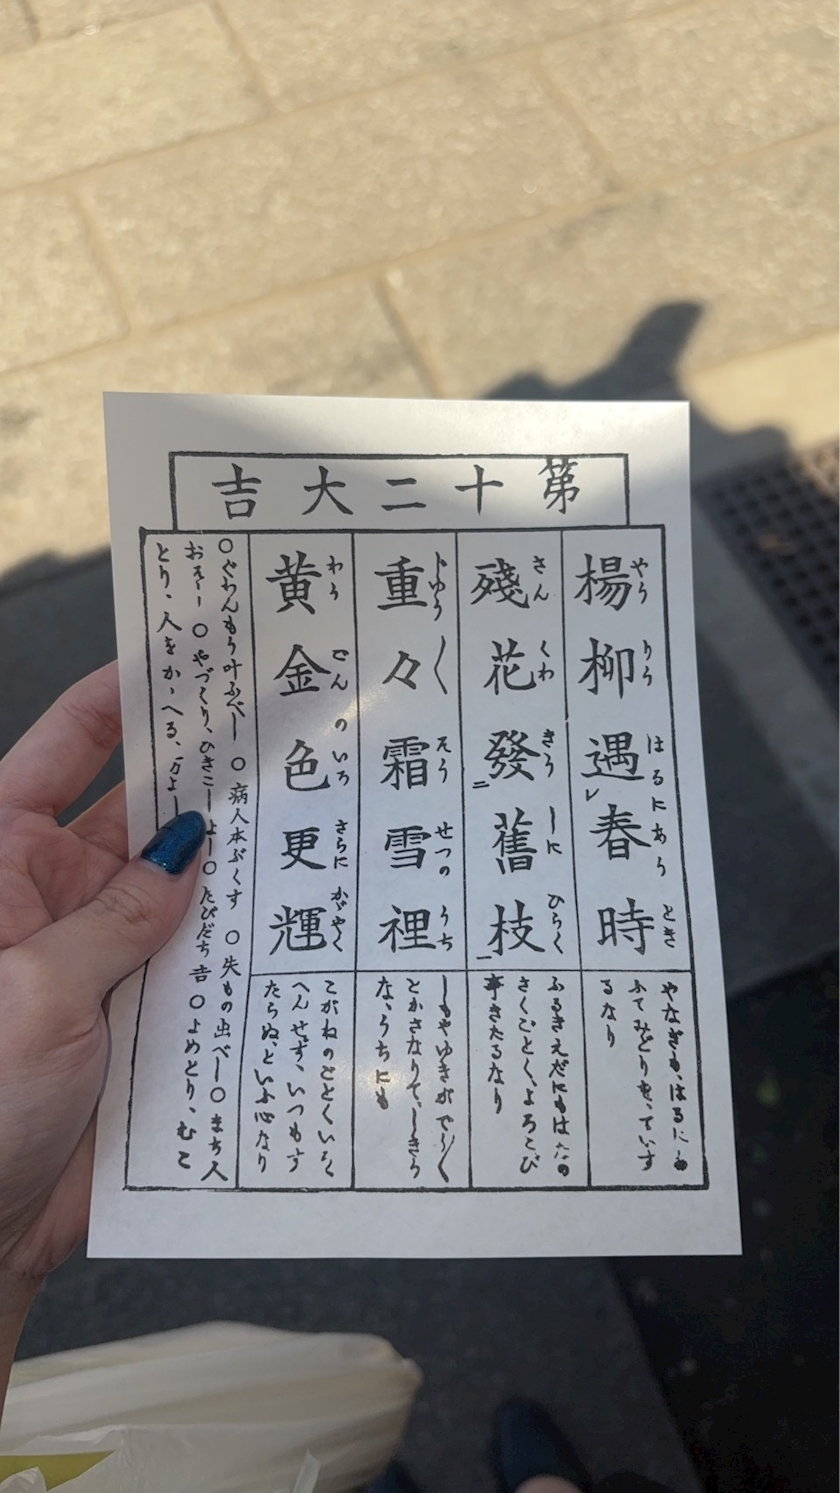 第十二大吉
楊柳遇春時
やう りう はるにあう とき
殘花發舊枝
さん くわ きうしに ひらく
重々霜雪裡
ぢゆう〳〵 そう せつの うち
黄金色更輝
わう ごんの いろ さらに かゞやく
やなぎも、はるに
ふてみどりを、ていす
るなり
ふるきえだにもはなの
さくごとく、よろこび
事きたるなり
しもやゆきが
とかさなりて、しきり
なうちにも
こがねのごとくいろ
へんせず、いつもす
たらぬ、といふ心なり
○ぐわんもう叶ふべし ○病人本ぶくす ○失もの出べし○まち人
おそし ○やづくり、ひきこしよし○たびだち吉 ○よめとり、むこ
とり、人をかゝへる、万よし